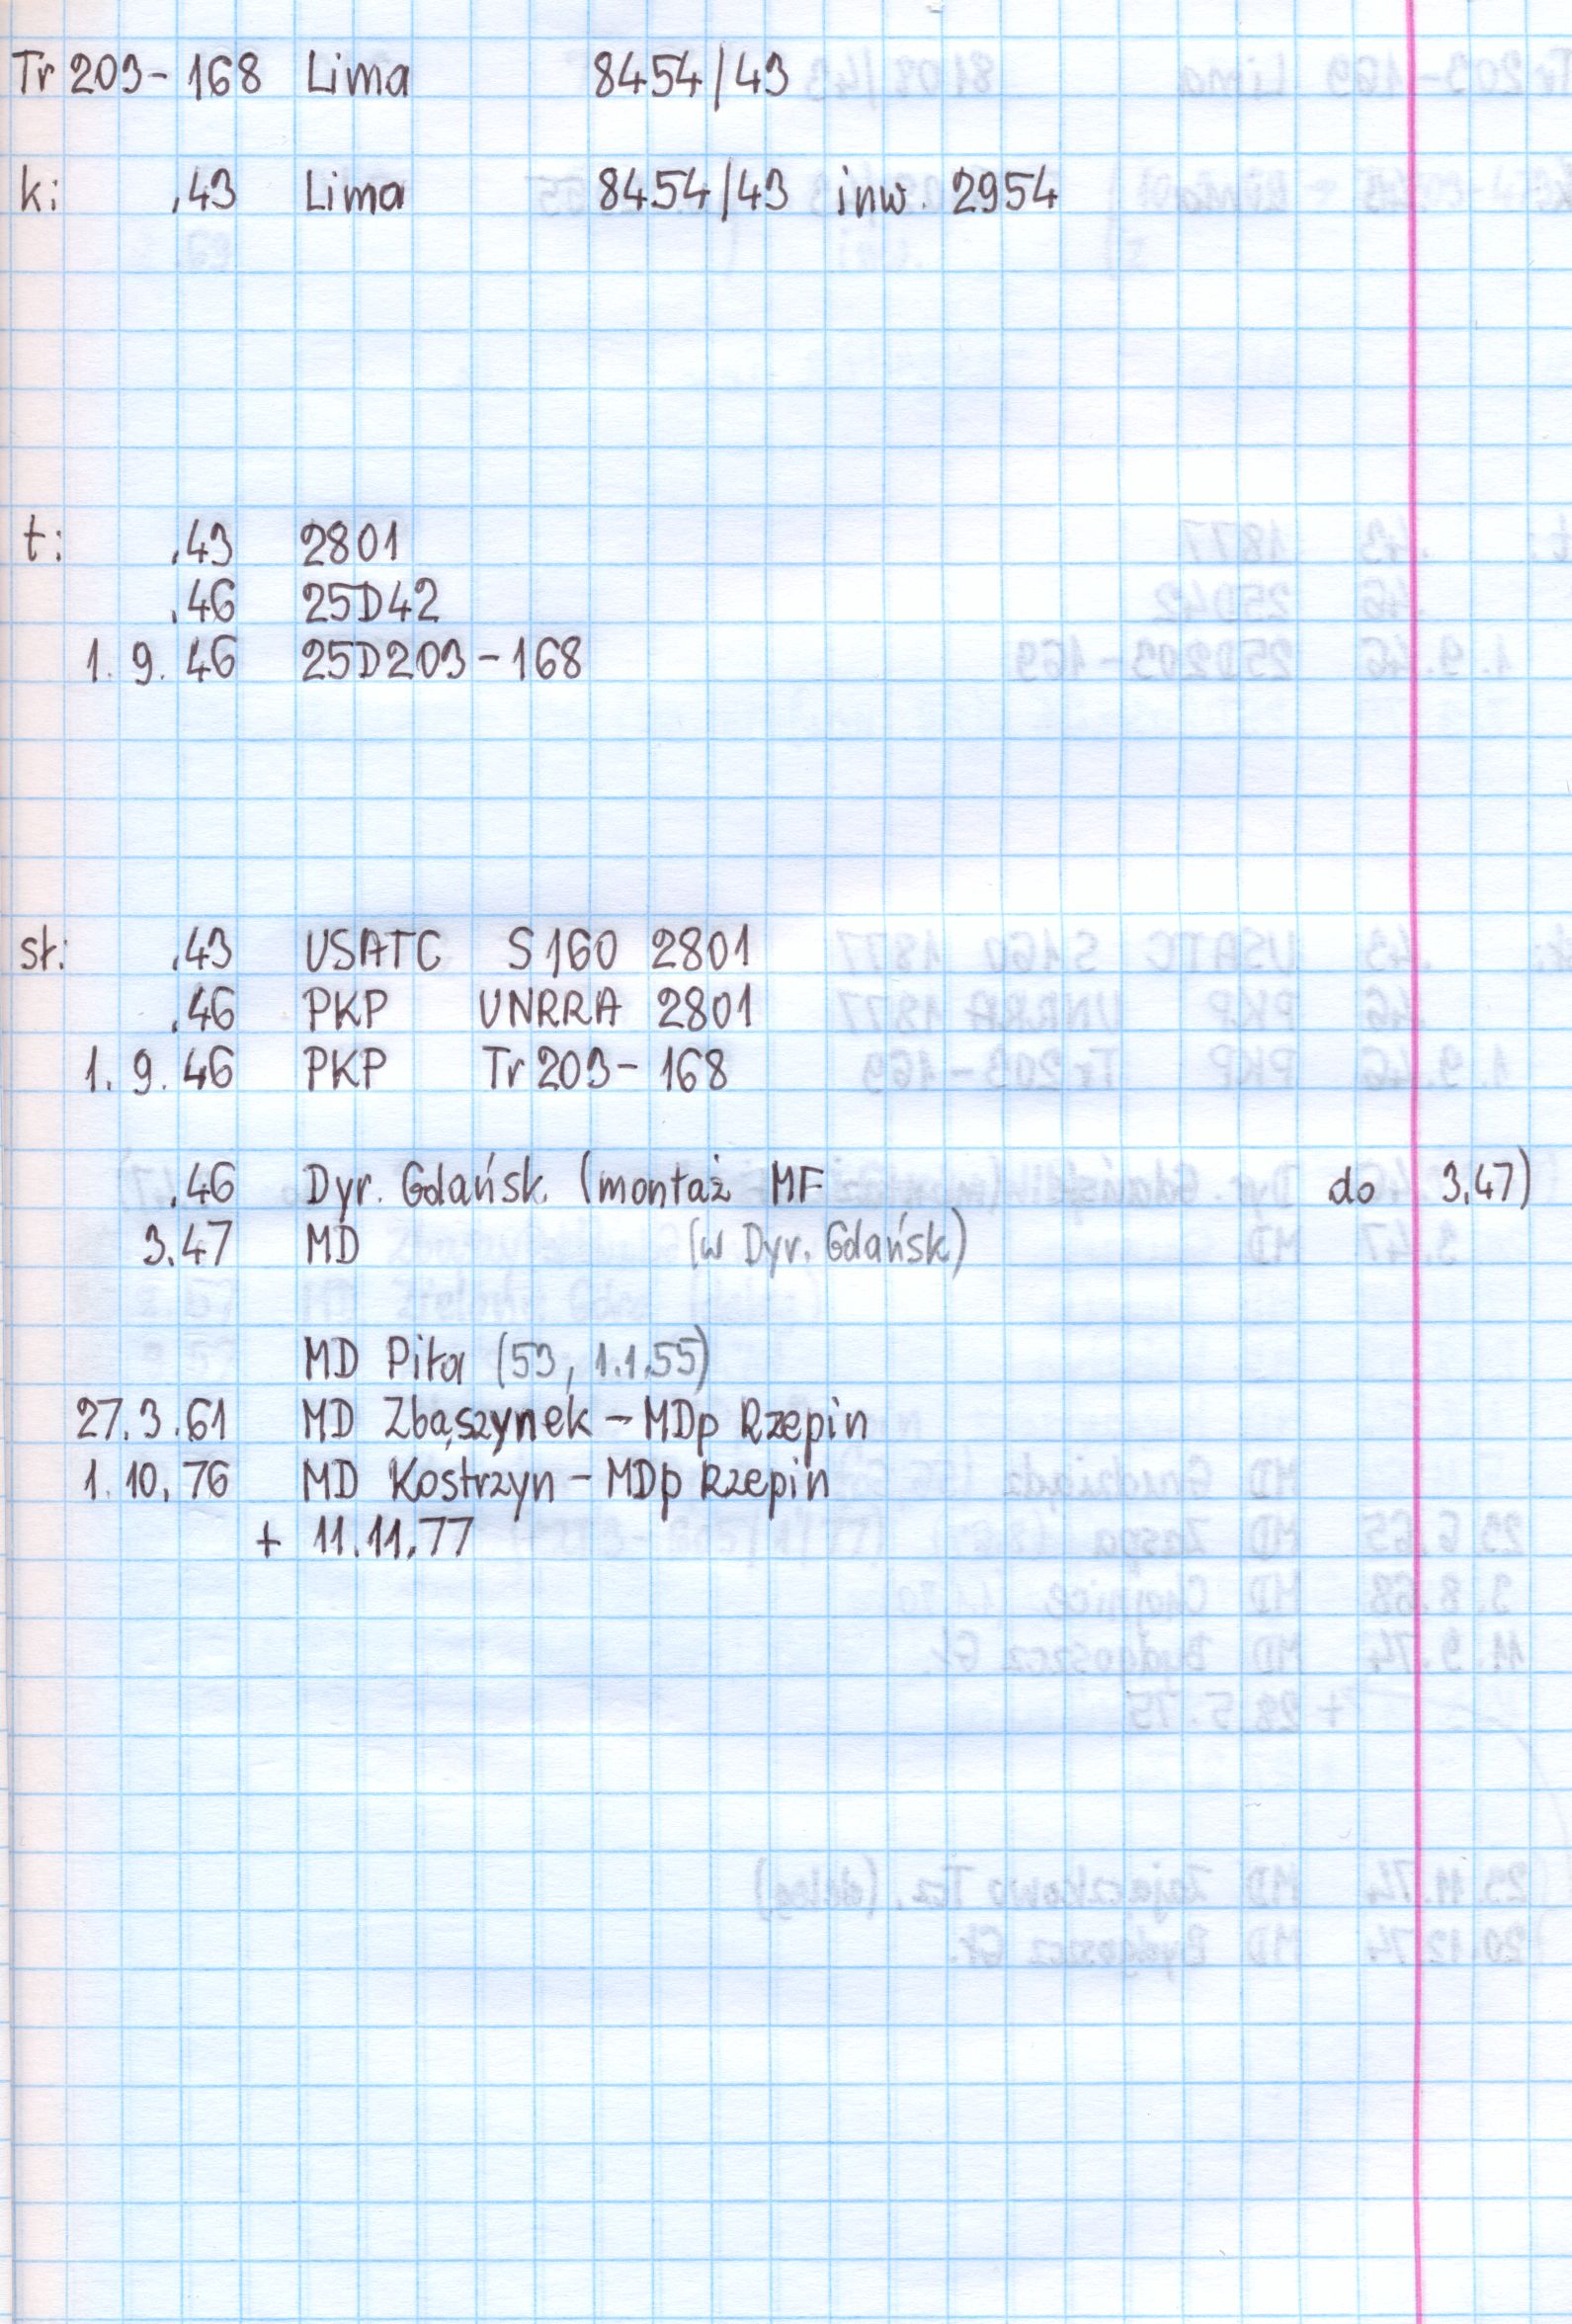 Tr 203-168 Lima 8454/43
k: .43 Lima 8454/43 inw. 2954
t: .43 2801
.46 25D42
1.9.46 25D203-168
sł: .43 USATC S160 2801
.46 PKP UNRRA 2801
1.9.46 PKP Tr 203-168
.46 Dyr. Gdańsk (montaż MF do 3.47)
3.47 MD (w Dyr. Gdańsk)
MD Piła (53, 1.1.55)
27.3.61 MD Zbąszynek - MDp Rzepin
1.10.76 MD Kostrzyn - MDp Rzepin
+ 11.11.77